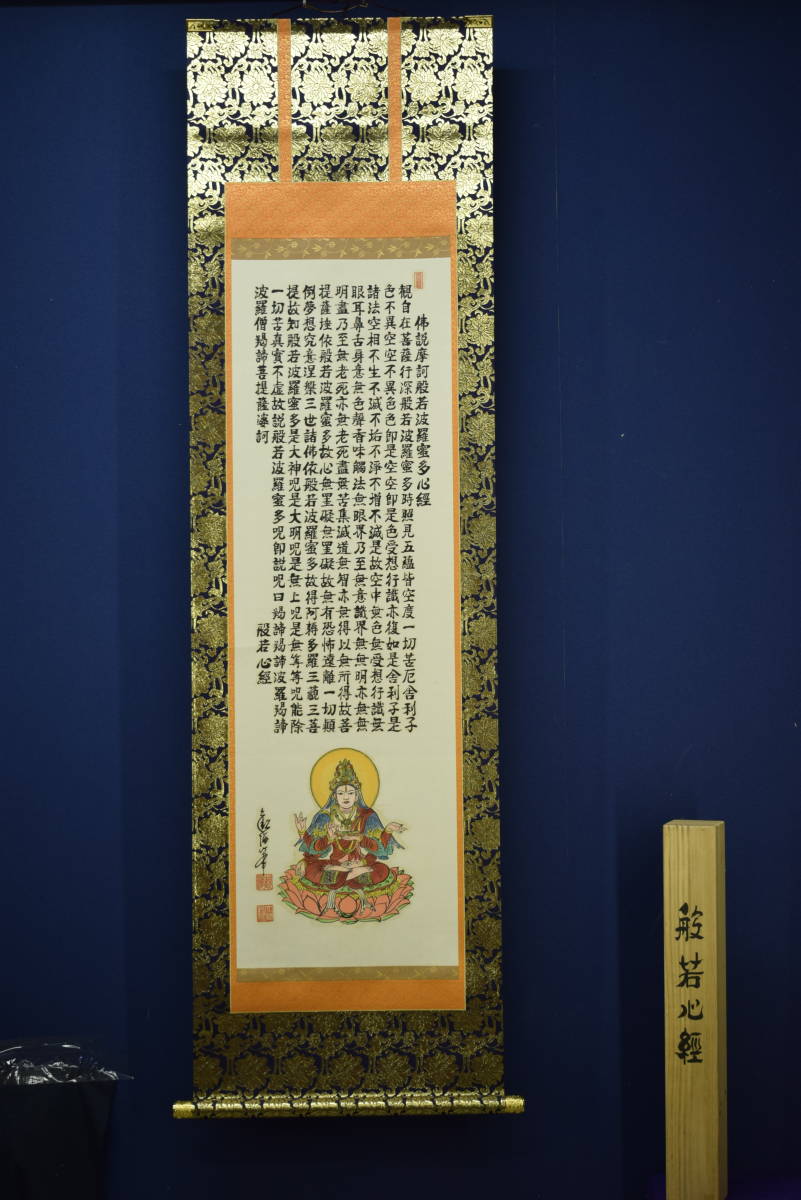 佛説摩訶般若波羅蜜多心經
観自在菩薩行深般若波羅蜜多時照見五蘊皆空度一切苦厄舍利子
色不異空空不異色色即是空空即是色受想行識亦復如是舍利子是
諸法空相不生不滅不垢不淨不增不減是故空中無色無受想行識無
眼耳鼻舌身意無色聲香味觸法無眼界乃至無意識界無無明亦無無
明盡乃至無老死亦無老死盡無苦集滅道無智亦無得以無所得故菩
提薩埵依般若波羅蜜多故心無罣礙無罣礙故無有恐怖遠離一切顛
倒夢想究竟涅槃三世諸佛依般若波羅蜜多故得阿耨多羅三藐三菩
提故知般若波羅蜜多是大神呪是大明呪是無上呪是無等等呪能除
一切苦真實不虛故説般若波羅蜜多呪即説呪曰羯諦羯諦波羅羯諦
波羅僧羯諦菩提薩婆訶　般若心經
般若心經